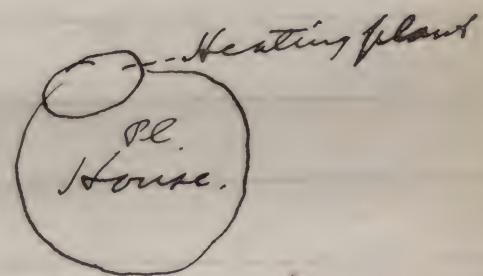 Heating plant
Pl.
House.